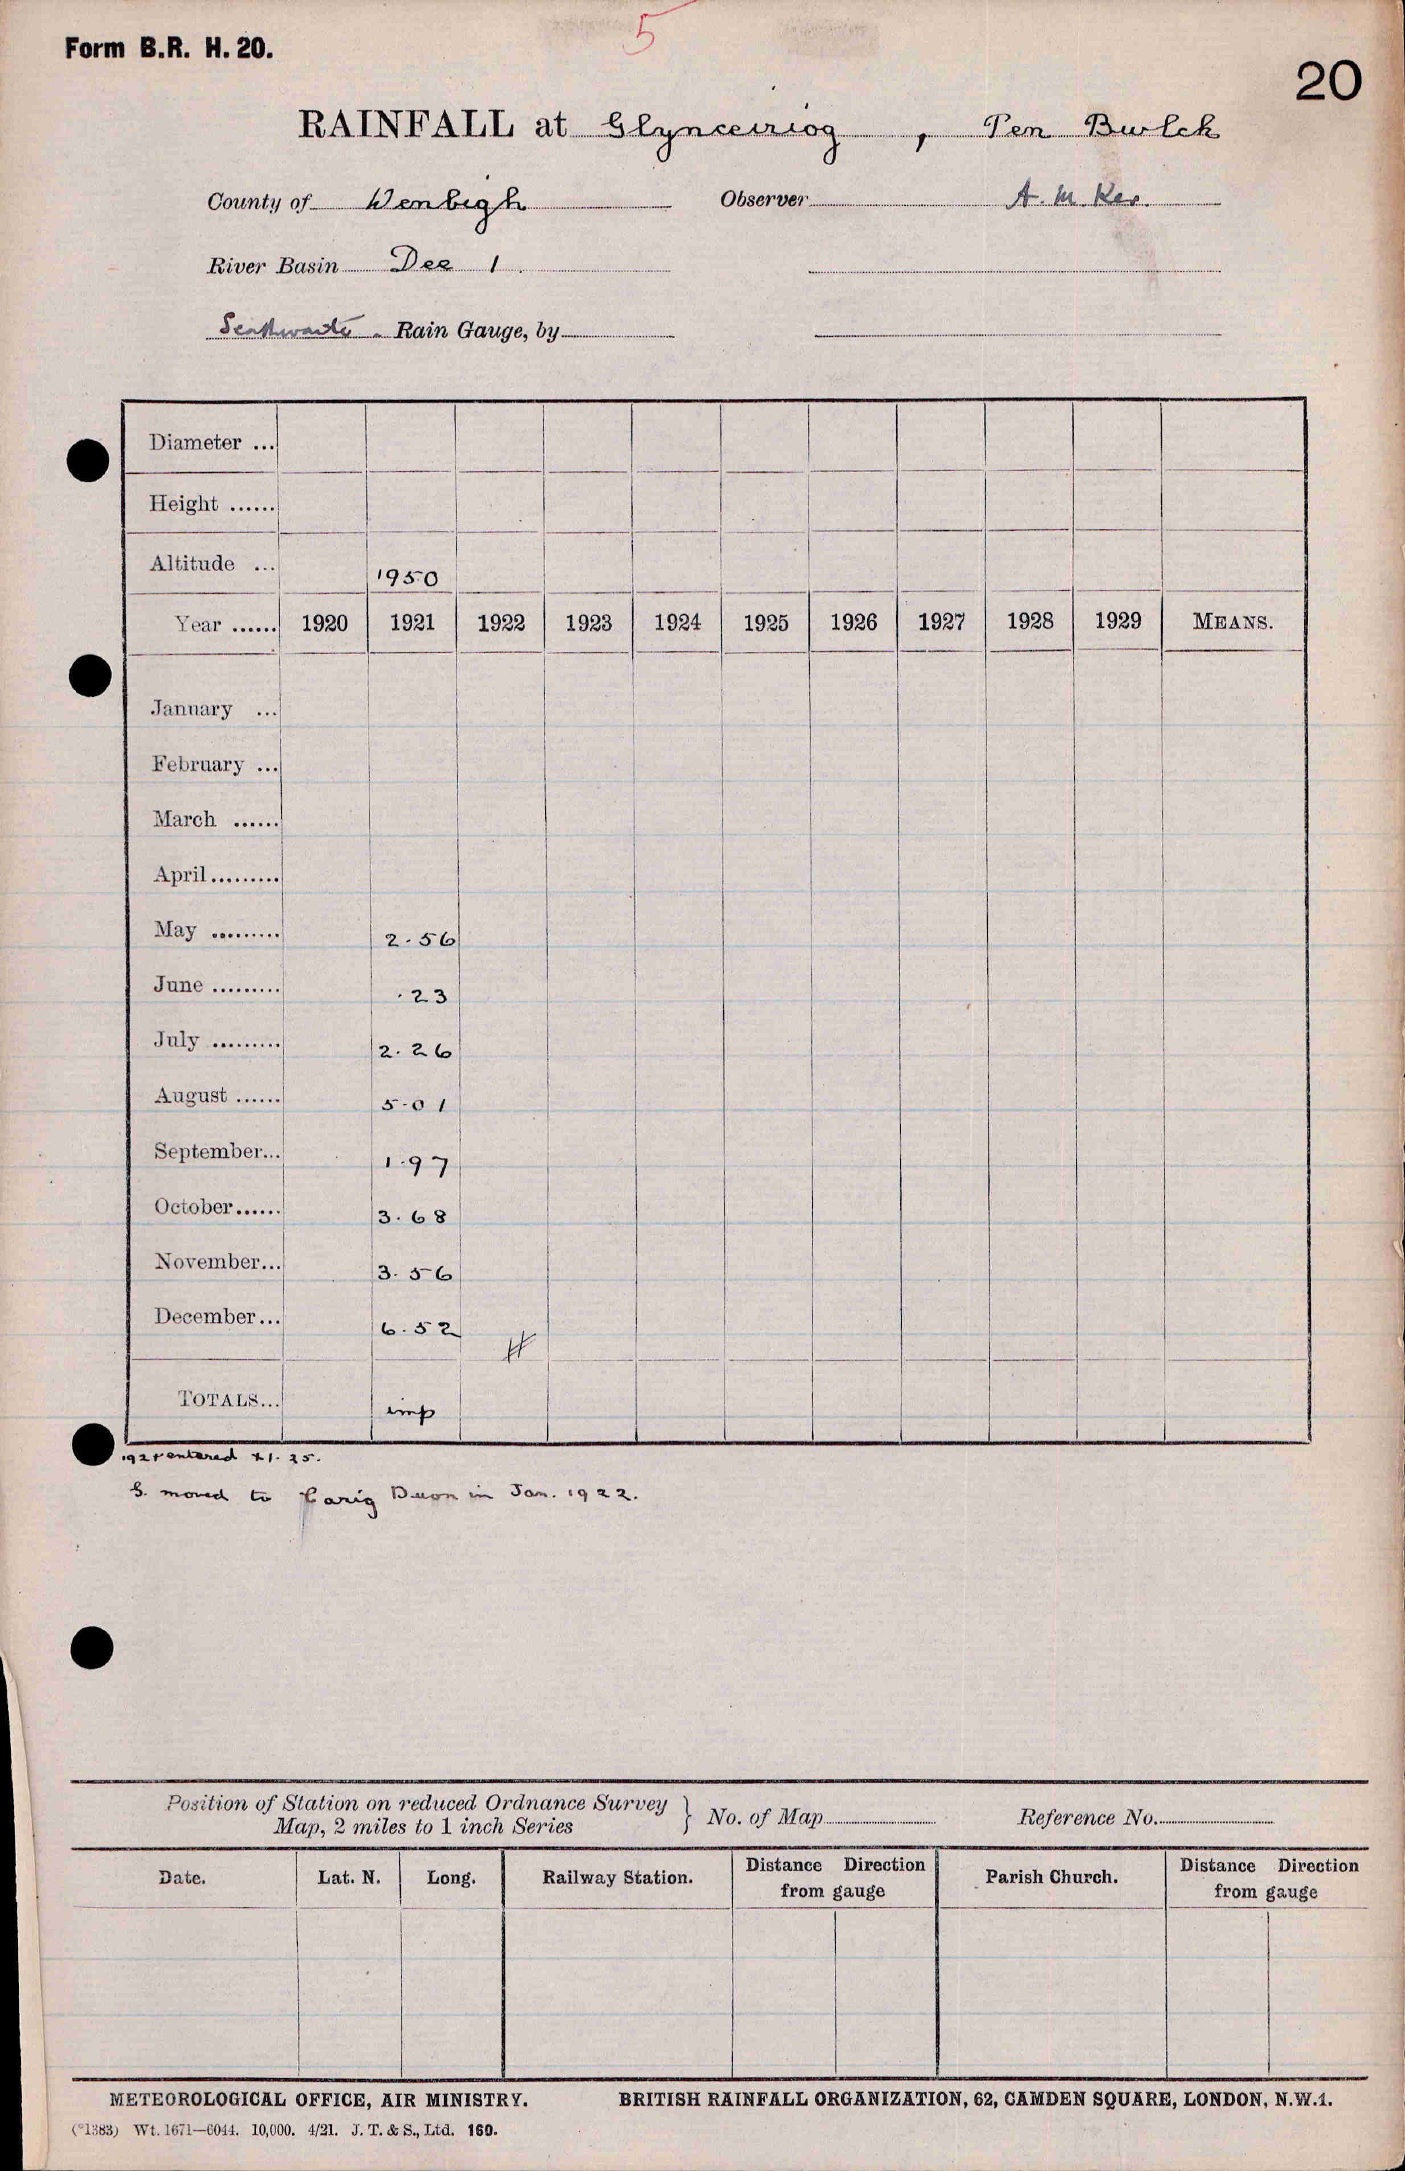 5
Form B.R. H. 20.
20
RAINFALL at Glynceiriog, Pen Bwlch
County of Denbigh Observer A. M. Ker.
River Basin Dee 1
Seathwaite Rain Gauge, by
Diameter ...
Height ......
Altitude ... 1950
Year ...... 1920 1921 1922 1923 1924 1925 1926 1927 1928 1929 MEANS.
January ...
February ...
March ......
April.........
May ......... 2.56
June ......... .23
July ......... 2.26
August ...... 5.01
September... 1.97
October...... 3.68
November... 3.56
December... 6.52
TOTALS... imp
1921 entered 21.25.
G. moved to Carig Duon in Jan. 1922.
Position of Station on reduced Ordnance Survey
Map, 2 miles to 1 inch Series } No. of Map Reference No.
Date. Lat. N. Long. Railway Station. Distance Direction from gauge Parish Church. Distance Direction from gauge
METEOROLOGICAL OFFICE, AIR MINISTRY. BRITISH RAINFALL ORGANIZATION, 62, CAMDEN SQUARE, LONDON, N.W.1.
(*1383) Wt. 1671—6044. 10,000. 4/21. J. T. & S., Ltd. 160.